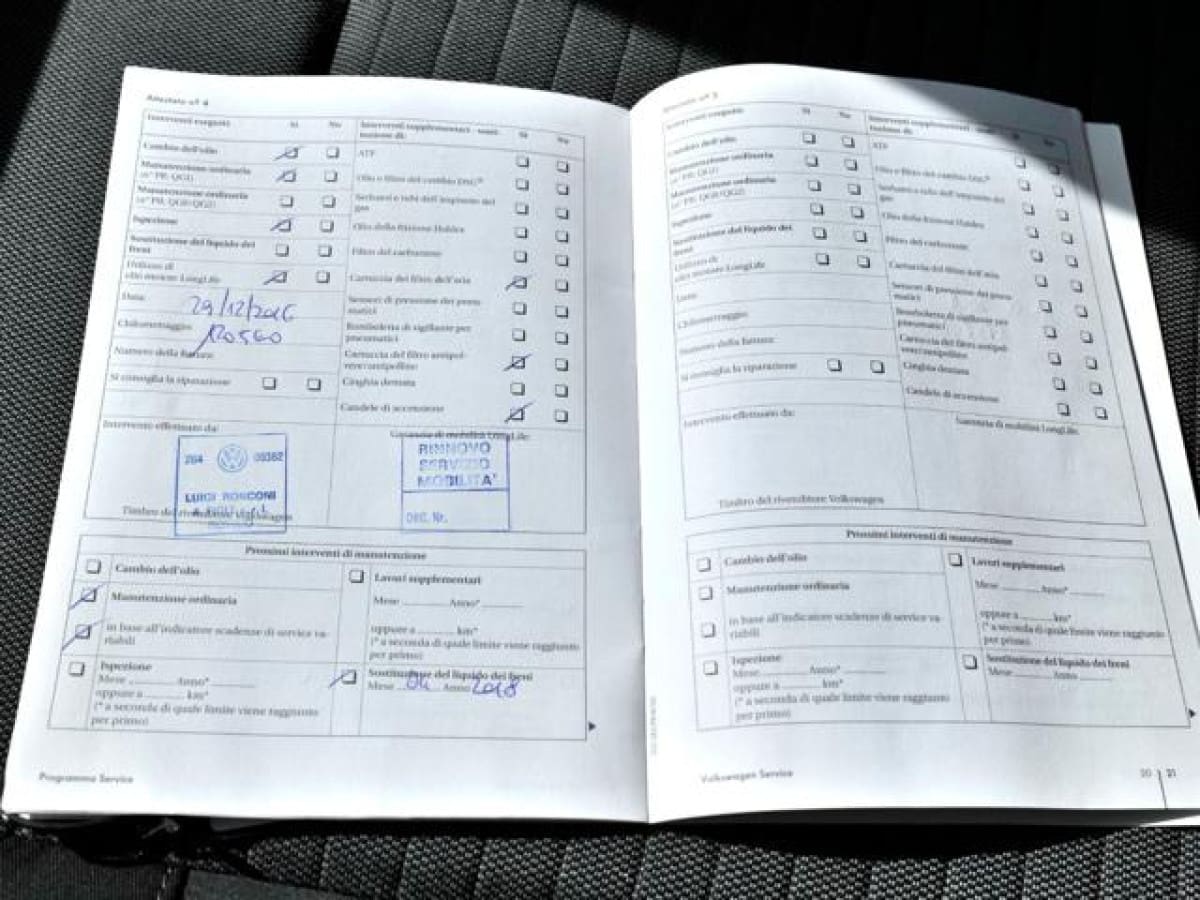 Attestato n° 4
Interventi eseguiti Sì No
Cambio dell'olio
Manutenzione ordinaria
(n° PR: QG1)
Manutenzione ordinaria
(n° PR: QG0/QG2)
Ispezione
Sostituzione del liquido dei
freni
Utilizzo di
olio motore LongLife
Data:
29/12/2016
Chilometraggio:
Numero della fattura:
Si consiglia la riparazione
Interventi supplementari - sosti-
tuzione di: Sì No
ATF
Olio e filtro del cambio DSG®
Serbatoi e tubi dell'impianto del
gas
Olio della frizione Haldex
Filtro del carburante
Cartuccia del filtro dell'aria
Sensori di pressione dei pneu-
matici
Bomboletta di sigillante per
pneumatici
Cartuccia del filtro antipol-
vere/antipolline
Cinghia dentata
Candele di accensione
Intervento effettuato da:
Garanzia di mobilità LongLife:
284 00362
LUIGI RONCONI
Timbro del rivenditore Volkswagen
RINNOVO
SERVIZIO
MOBILITA'
Prossimi interventi di manutenzione
Cambio dell'olio
Manutenzione ordinaria
in base all'indicatore scadenze di service va-
riabili
Ispezione
Mese Anno*
oppure a km*
(* a seconda di quale limite viene raggiunto
per primo)
Lavori supplementari
Mese Anno*
oppure a km*
(* a seconda di quale limite viene raggiunto
per primo)
Sostituzione del liquido dei freni
Mese 04 Anno 2018
Programma Service
Attestato n° 5
Interventi eseguiti Sì No
Cambio dell'olio
Manutenzione ordinaria
(n° PR: QG1)
Manutenzione ordinaria
(n° PR: QG0/QG2)
Ispezione
Sostituzione del liquido dei
freni
Utilizzo di
olio motore LongLife
Data:
Chilometraggio:
Numero della fattura:
Si consiglia la riparazione
Interventi supplementari - sosti-
tuzione di: Sì No
ATF
Olio e filtro del cambio DSG®
Serbatoi e tubi dell'impianto del
gas
Olio della frizione Haldex
Filtro del carburante
Cartuccia del filtro dell'aria
Sensori di pressione dei pneu-
matici
Bomboletta di sigillante per
pneumatici
Cartuccia del filtro antipol-
vere/antipolline
Cinghia dentata
Candele di accensione
Intervento effettuato da:
Garanzia di mobilità LongLife:
Timbro del rivenditore Volkswagen
Prossimi interventi di manutenzione
Cambio dell'olio
Manutenzione ordinaria
in base all'indicatore scadenze di service va-
riabili
Ispezione
Mese Anno*
oppure a km*
(* a seconda di quale limite viene raggiunto
per primo)
Lavori supplementari
Mese Anno*
oppure a km*
(* a seconda di quale limite viene raggiunto
per primo)
Sostituzione del liquido dei freni
Mese Anno
Volkswagen Service
20 21